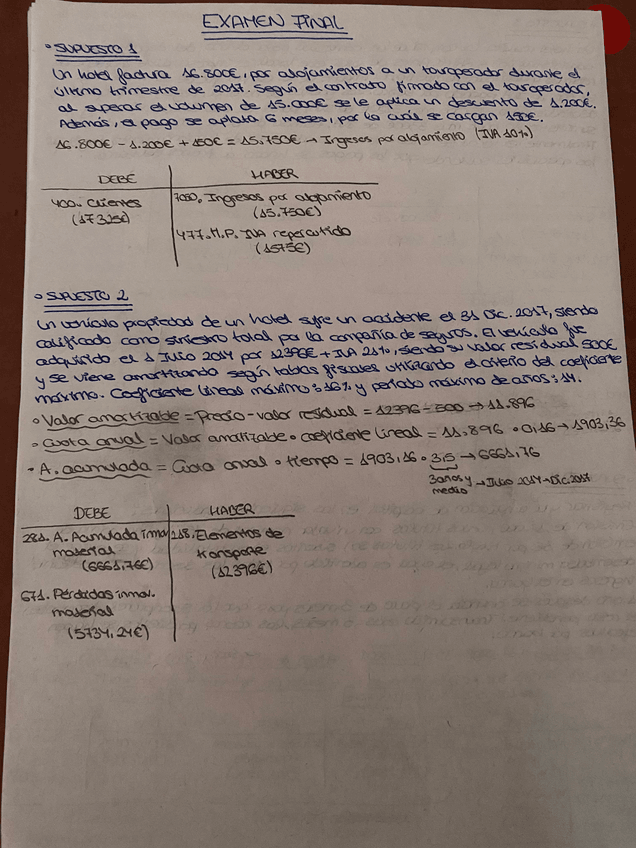 EXAMEN FINAL
• SUPUESTO 1
Un hotel factura 16.800€, por alojamientos a un touroperador durante el
último trimestre de 2017. Según el contrato firmado con el touroperador,
al superar el volumen de 15.000€ se le aplica un descuento de 1.200€.
Además, el pago se aplaza 6 meses, por lo cual se cargan 150€.
16.800€ - 1.200€ + 150€ = 15.750€ → Ingresos por alojamiento (IVA 10%)
DEBE HABER
400. Clientes 7050. Ingresos por alojamiento
(17.325€) (15.750€)
477. H.P. IVA repercutido
(1575€)
• SUPUESTO 2
Un vehículo propiedad de un hotel sufre un accidente el 31 Dic. 2017, siendo
calificado como siniestro total por la compañía de seguros. El vehículo fue
adquirido el 1 Julio 2014 por 12396€ + IVA 21%, siendo su valor residual 500€
y se viene amortizando según tablas fiscales utilizando el criterio del coeficiente
máximo. Coeficiente lineal máximo: 16% y periodo máximo de años: 14.
• Valor amortizable = Precio - valor residual = 12396 - 500 → 11.896
• Cuota anual = Valor amortizable • coeficiente lineal = 11.896 • 0,16 → 1903,36
• A. acumulada = Cuota anual • tiempo = 1903,16 • 3,5 → 6661,76
3 años y medio → Julio 2014 → Dic. 2017
DEBE HABER
281. A. Acumulada inmo. 218. Elementos de
material transporte
(6661,76€) (12396€)
671. Pérdidas inmov.
material
(5734,24€)